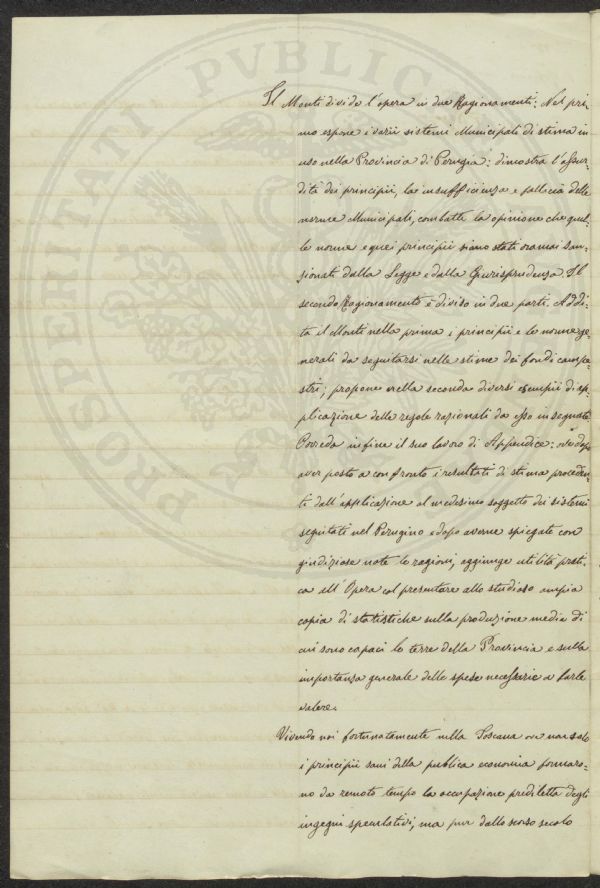 Il Monti divide l'opera in due Ragionamenti: Nel pri-
mo espone i varii sistemi Municipali di stima in
uso nella Provincia di Perugia: dimostra l'assur-
dità dei principii, la insufficienza e fallacia delle
norme Municipali, combatte la opinione che quel-
le norme e quei principii siano stati oramai san-
zionati dalla Legge e dalla Giurisprudenza. Il
secondo Ragionamento è diviso in due parti. Addi-
ta il Monti nella prima i principii e le norme ge-
nerali da seguitarsi nelle stime dei fondi campe-
stri; propone nella seconda diversi esempii di ap-
plicazione delle regole razionali da esso insegnate.
Correda infine il suo lavoro di Appendice: ove dopo
aver posto a confronto i resultati di stima proceden-
ti dall'applicazione al medesimo soggetto dei sistemi
seguitati nel Perugino e dopo averne spiegate con
giudiziose note le ragioni, aggiunge utilità prati-
ca all'Opera col presentare allo studioso ampia
copia di statistiche sulla produzione media di
cui sono capaci le terre della Provincia e sulla
importanza generale delle spese necessarie a farle
valere.
Vivendo noi fortunatamente nella Toscana ove non solo
i principii sani della publica economia formaro-
no da remoto tempo la occupazione prediletta degli
ingegni speculativi, ma pur dallo scorso secolo
PVBLICAE
POSTERITATI